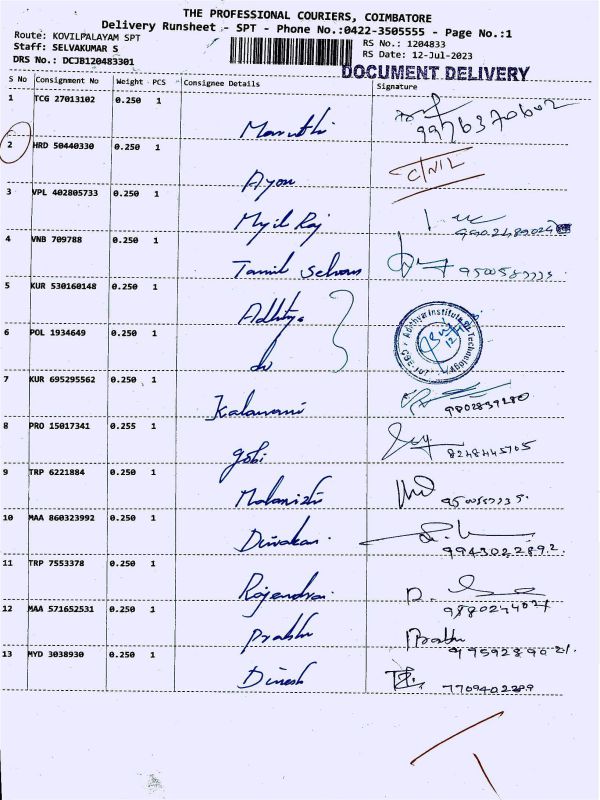 THE PROFESSIONAL COURIERS, COIMBATORE
Delivery Runsheet - SPT - Phone No.:0422-3505555 - Page No.:1
Route: KOVILPALAYAM SPT
RS No.: 1204833
Staff: SELVAKUMAR S
RS Date: 12-Jul-2023
DRS No.: DCJB120483301
DOCUMENT DELIVERY
S No Consignment No Weight PCS Consignee Details Signature
1 TCG 27013102 0.250 1 Maruthi
9976370602
2 HRD 50440330 0.250 1 Ayon C/N/L
3 VPL 402805733 0.250 1 Myil Raj
4 VNB 709788 0.250 1 Tamil Selvan
5 KUR 530160148 0.250 1 Adhitya
Adithya Institute of Technology
CBE-107
6 POL 1934649 0.250 1 do
7 KUR 695295562 0.250 1 Kalavani
9802839280
8 PRO 15017341 0.255 1 gobi
8248445705
9 TRP 6221884 0.250 1
10 MAA 860323992 0.250 1 Diwakar
9943022892
11 TRP 7553378 0.250 1 Rajendran
12 MAA 571652531 0.250 1 Prabhu Prabhu
13 MYD 3038930 0.250 1 Dinesh
7709402289